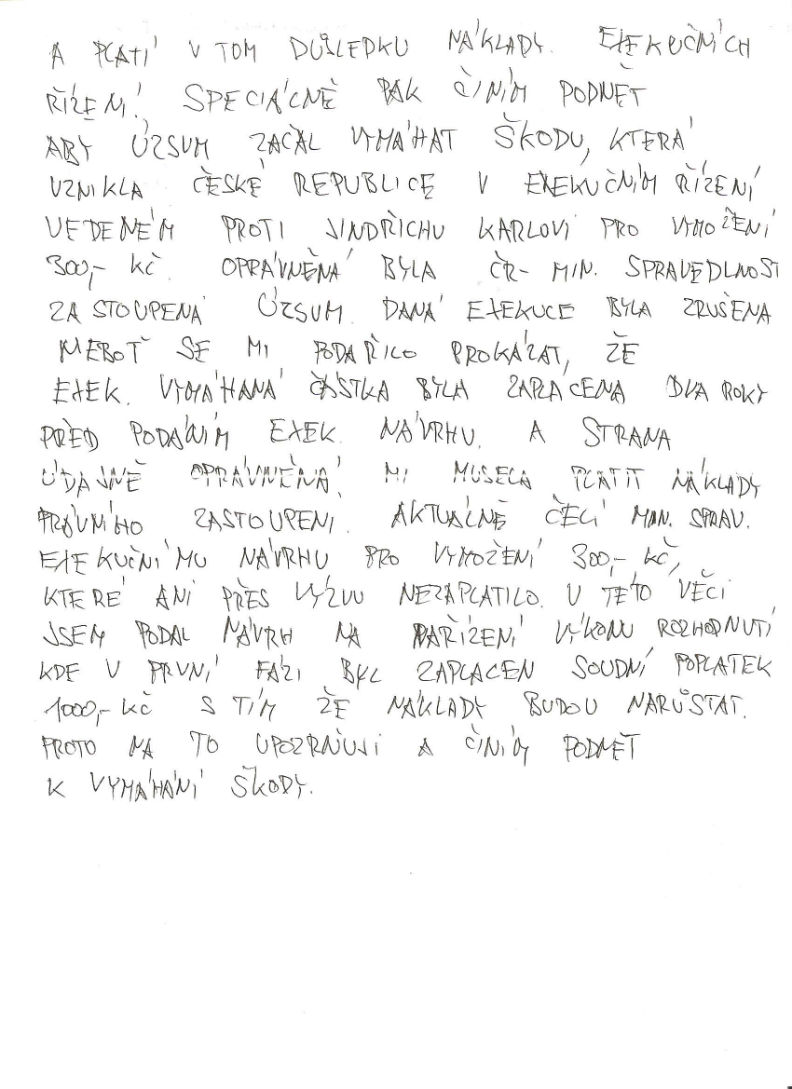 A PLATÍ V TOM DŮSLEDKU NÁKLADY EXEKUČNÍCH
ŘÍZENÍ. SPECIÁLNĚ PAK ČINÍM PODNĚT
ABY ÚZSVM ZAČAL VYMÁHAT ŠKODU, KTERÁ
VZNIKLA ČESKÉ REPUBLICE V EXEKUČNÍM ŘÍZENÍ
VEDENÉM PROTI JINDŘICHU KARLOVI PRO VYMOŽENÍ
300,- KČ. OPRÁVNĚNÁ BYLA ČR- MIN. SPRAVEDLNOST
ZASTOUPENÁ ÚZSVM. DANÁ EXEKUCE BYLA ZRUŠENA
NEBOŤ SE MI PODAŘILO PROKÁZAT, ŽE
EXEK. VYMÁHANÁ ČÁSTKA BYLA ZAPLACENA DVA ROKY
PŘED PODÁNÍM EXEK. NÁVRHU. A STRANA
ÚDAJNĚ OPRÁVNĚNÁ MI MUSELA PLATIT NÁKLADY
PRÁVNÍHO ZASTOUPENÍ. AKTUÁLNĚ ČELÍ MIN. SPRAV.
EXEKUČNÍMU NÁVRHU PRO VYMOŽENÍ 300,- KČ,
KTERÉ ANI PŘES VÝZVU NEZAPLATILO. V TÉTO VĚCI
JSEM PODAL NÁVRH NA NAŘÍZENÍ VÝKONU ROZHODNUTÍ
KDE V PRVNÍ FÁZI BYL ZAPLACEN SOUDNÍ POPLATEK
1000,- KČ S TÍM ŽE NÁKLADY BUDOU NARŮSTAT.
PROTO NA TO UPOZRŇUJI A ČINÍM PODNĚT
K VYMÁHÁNÍ ŠKODY.